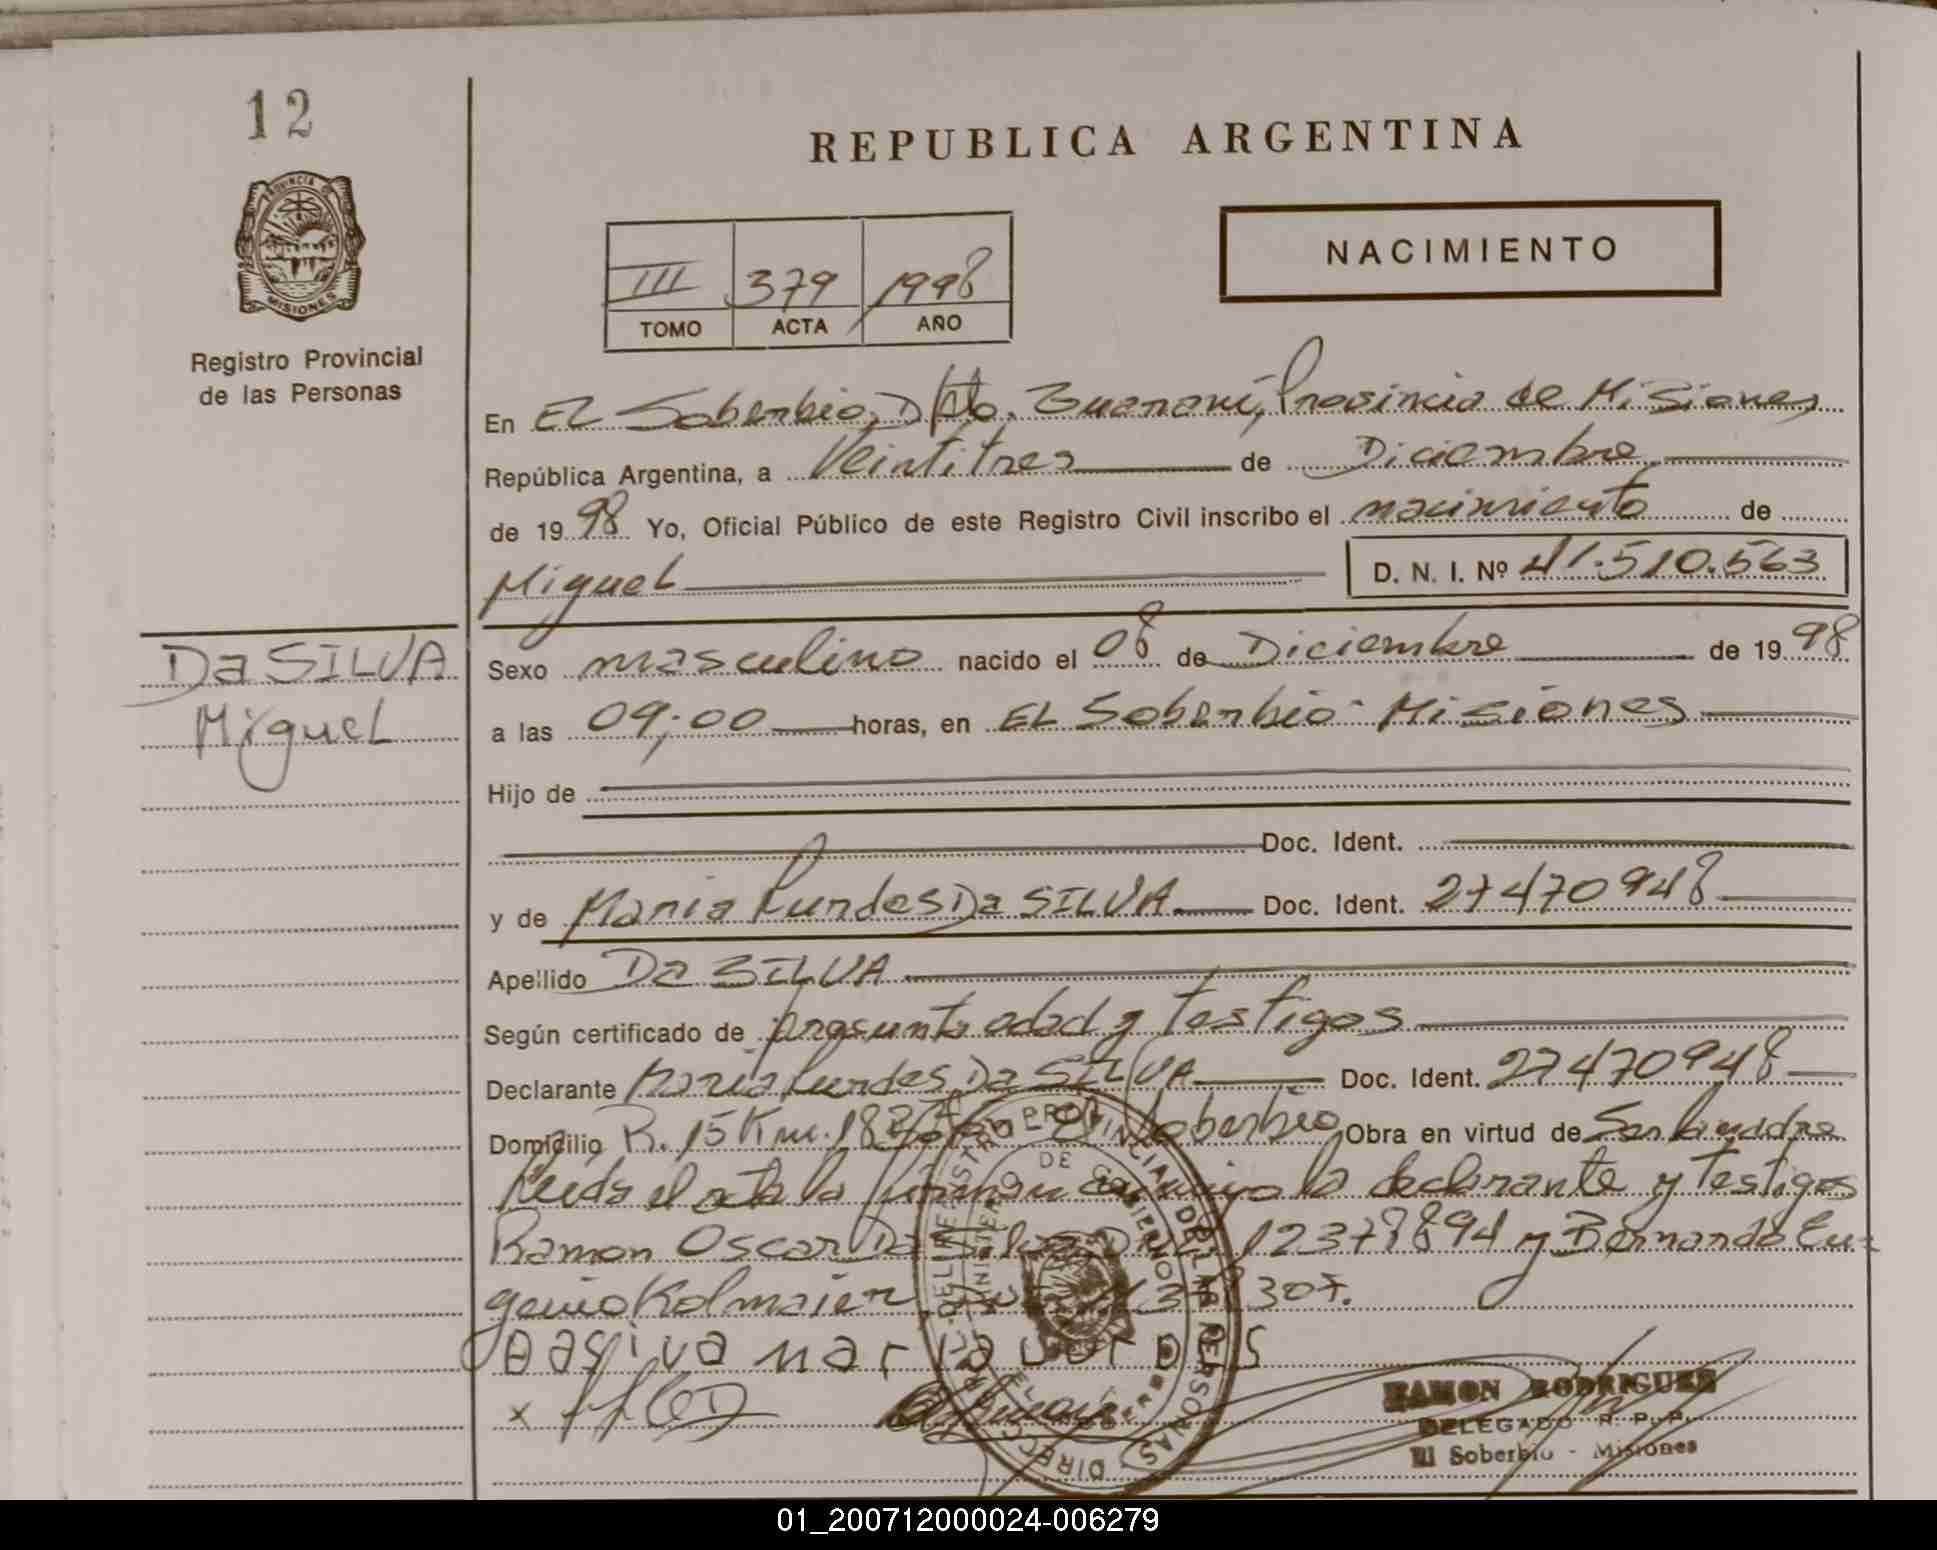 12
REPUBLICA ARGENTINA
PROVINCIA DE
MISIONES
Registro Provincial
de las Personas
III 379 1998
TOMO ACTA AÑO
NACIMIENTO
En EL Soberbio, Dpto. Guaraní, Provincia de Misiones
República Argentina, a Veintitres de Diciembre
de 1998 Yo, Oficial Público de este Registro Civil inscribo el nacimiento de
Miguel D. N. I. Nº 41.510.563
Da SILVA
Miguel
Sexo masculino nacido el 08 de Diciembre de 1998
a las 09,00 horas, en EL Soberbio - Misiones
Hijo de
Doc. Ident.
y de Maria Lurdes Da SILVA Doc. Ident. 27470948
Apellido Da SILVA
Según certificado de presunta edad y Testigos
Declarante Maria Lurdes Da SILVA Doc. Ident. 27470948
Domicilio R. 15 Km. 18 El Soberbio Obra en virtud de Ser la madre
Leida el acta la firman conmigo la declarante y Testigos
Ramon Oscar Da Silva 12378894 y Bernardo Eu-
genio Kolmaier 307.
Dasilva maria
RAMON RODRIGUEZ
DELEGADO R. P. P.
El Soberbio - Misiones
01_200712000024-006279